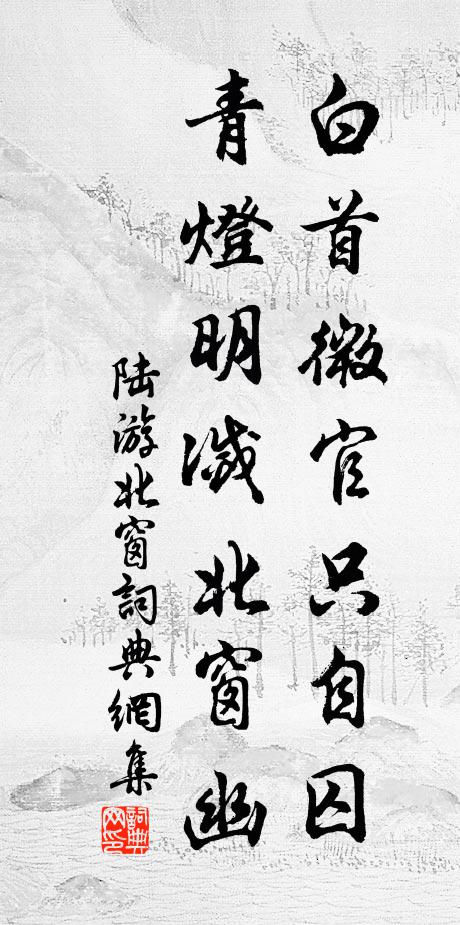 白首微官只自囚
青燈明滅北窗幽
陆游北窗詞典網集
詞典网印